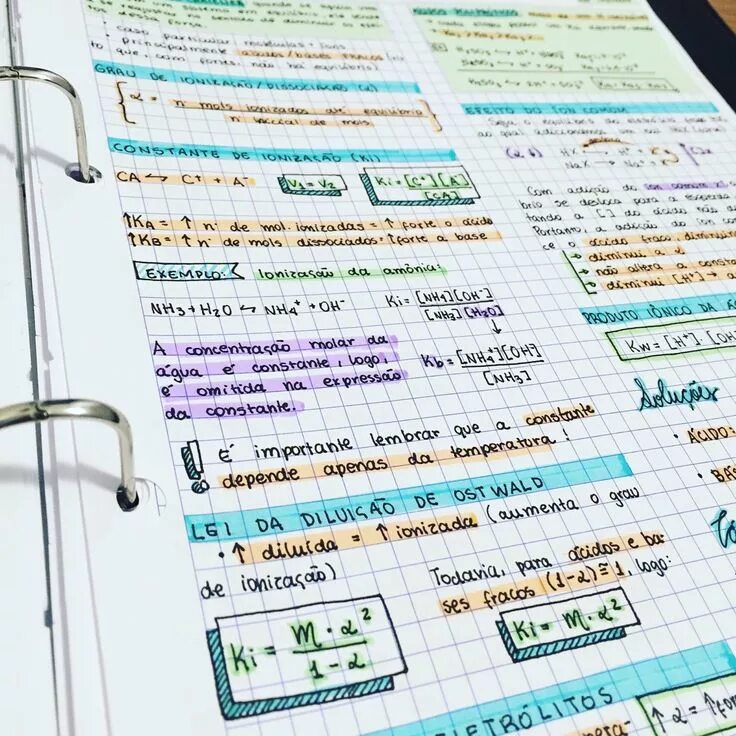 quando se
caso particular moléculas e íons
principalmente ácidos/bases FRACOS
to que, com fortes, não há equilíbrio)
GRAU DE IONIZAÇÃO/DISSOCIAÇÃO (α)
α = nº mols ionizados até equilíbrio
nº inicial de mols
CONSTANTE DE IONIZAÇÃO (Ki)
CA ⇋ C⁺ + A⁻
V₁ = V₂
Ki = [C⁺][A⁻]
[CA]
↑KA = ↑ nº de mol. ionizadas = ↑ forte o ácido
↑KB = ↑ nº de mols dissociados = ↑ forte a base
EXEMPLO: Ionização da amônia:
NH₃ + H₂O ⇋ NH₄⁺ + OH⁻
Ki = [NH₄⁺][OH⁻]
[NH₃][H₂O]
↓
Kb = [NH₄⁺][OH⁻]
[NH₃]
A concentração molar da
água é constante, logo,
é omitida na expressão
da constante.
! É importante lembrar que a constante
depende apenas da temperatura!
LEI DA DILUIÇÃO DE OSTWALD
• ↑ diluída = ↑ ionizada (aumenta o grau
de ionização)
Todavia, para ácidos e ba-
ses fracos (1-α) ≅ 1, logo:
Ki = M · α²
1 - α
Ki = M · α²
ELETRÓLITOS
↑ α = ↑ for
EFEITO DO ÍON COMUM
Seja o equilíbrio
ao qual adicionamos um sal
Com adição do íon comum
brio se desloca para a esquerda
tando a [ ] do ácido não
Portanto, a adição do íon com
ce o ácido fraco, diminui
→ diminui α
→ não altera a consta
→ diminui [H⁺] →
PRODUTO IÔNICO DA Á
Kw = [H⁺] · [OH
Soluções
• ÁCIDO:
• BÁS